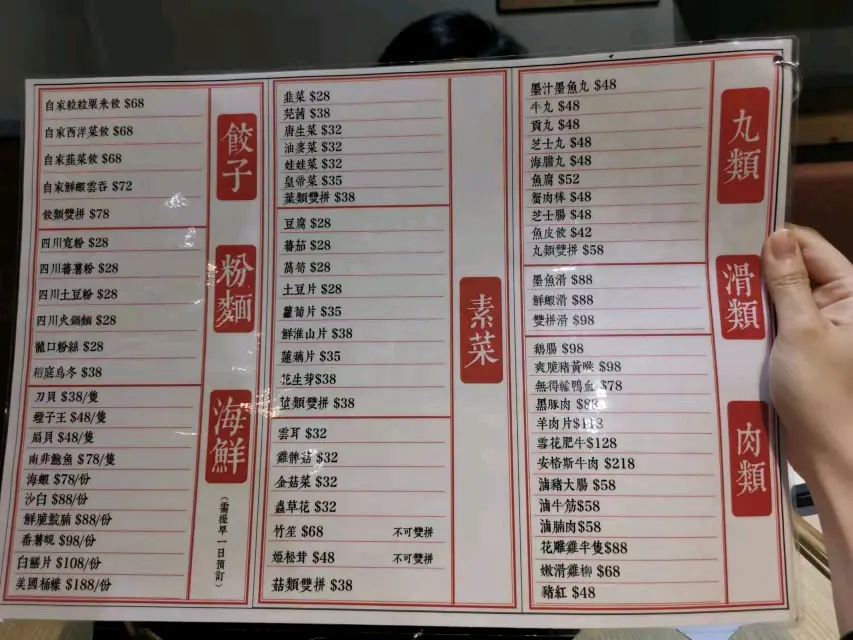 餃子
自家粒粒粟米餃 $68
自家西洋菜餃 $68
自家韭菜餃 $68
自家鮮蝦雲吞 $72
餃類雙拼 $78
粉麵
四川寬粉 $28
四川蕃薯粉 $28
四川土豆粉 $28
四川火鍋麵 $28
龍口粉絲 $28
稻庭烏冬 $38
海鮮
(需提早一日預訂)
刀貝 $38/隻
蟶子王 $48/隻
扇貝 $48/隻
南非鮑魚 $78/隻
海蝦 $78/份
沙白 $88/份
鮮脆鯇腩 $88/份
番薯蜆 $98/份
白鱔片 $108/份
美國桶蠔 $188/份
素菜
韭菜 $28
芫茜 $38
唐生菜 $32
油麥菜 $32
娃娃菜 $32
皇帝菜 $35
菜類雙拼 $38
豆腐 $28
蕃茄 $28
萵筍 $28
土豆片 $28
蘿蔔片 $35
鮮淮山片 $38
蓮藕片 $35
花生芽$38
瓜類雙拼 $38
雲耳 $32
雞髀菇 $32
金菇菜 $32
蟲草花 $32
竹笙 $68 不可雙拼
姬松茸 $48 不可雙拼
菇類雙拼 $38
丸類
墨汁墨魚丸 $48
牛丸 $48
貢丸 $48
芝士丸 $48
海膽丸 $48
魚腐 $52
蟹肉棒 $48
芝士腸 $48
魚皮餃 $42
丸類雙拼 $58
滑類
墨魚滑 $88
鮮蝦滑 $88
雙拼滑 $98
肉類
鵝腸 $98
爽脆豬黃喉 $98
無得輸鴨血 $78
黑豚肉
羊肉片
雪花肥牛$128
安格斯牛肉 $218
滷豬大腸 $58
滷牛筋$58
滷腩肉$58
花雕雞半隻$88
嫩滑雞柳 $68
豬紅 $48